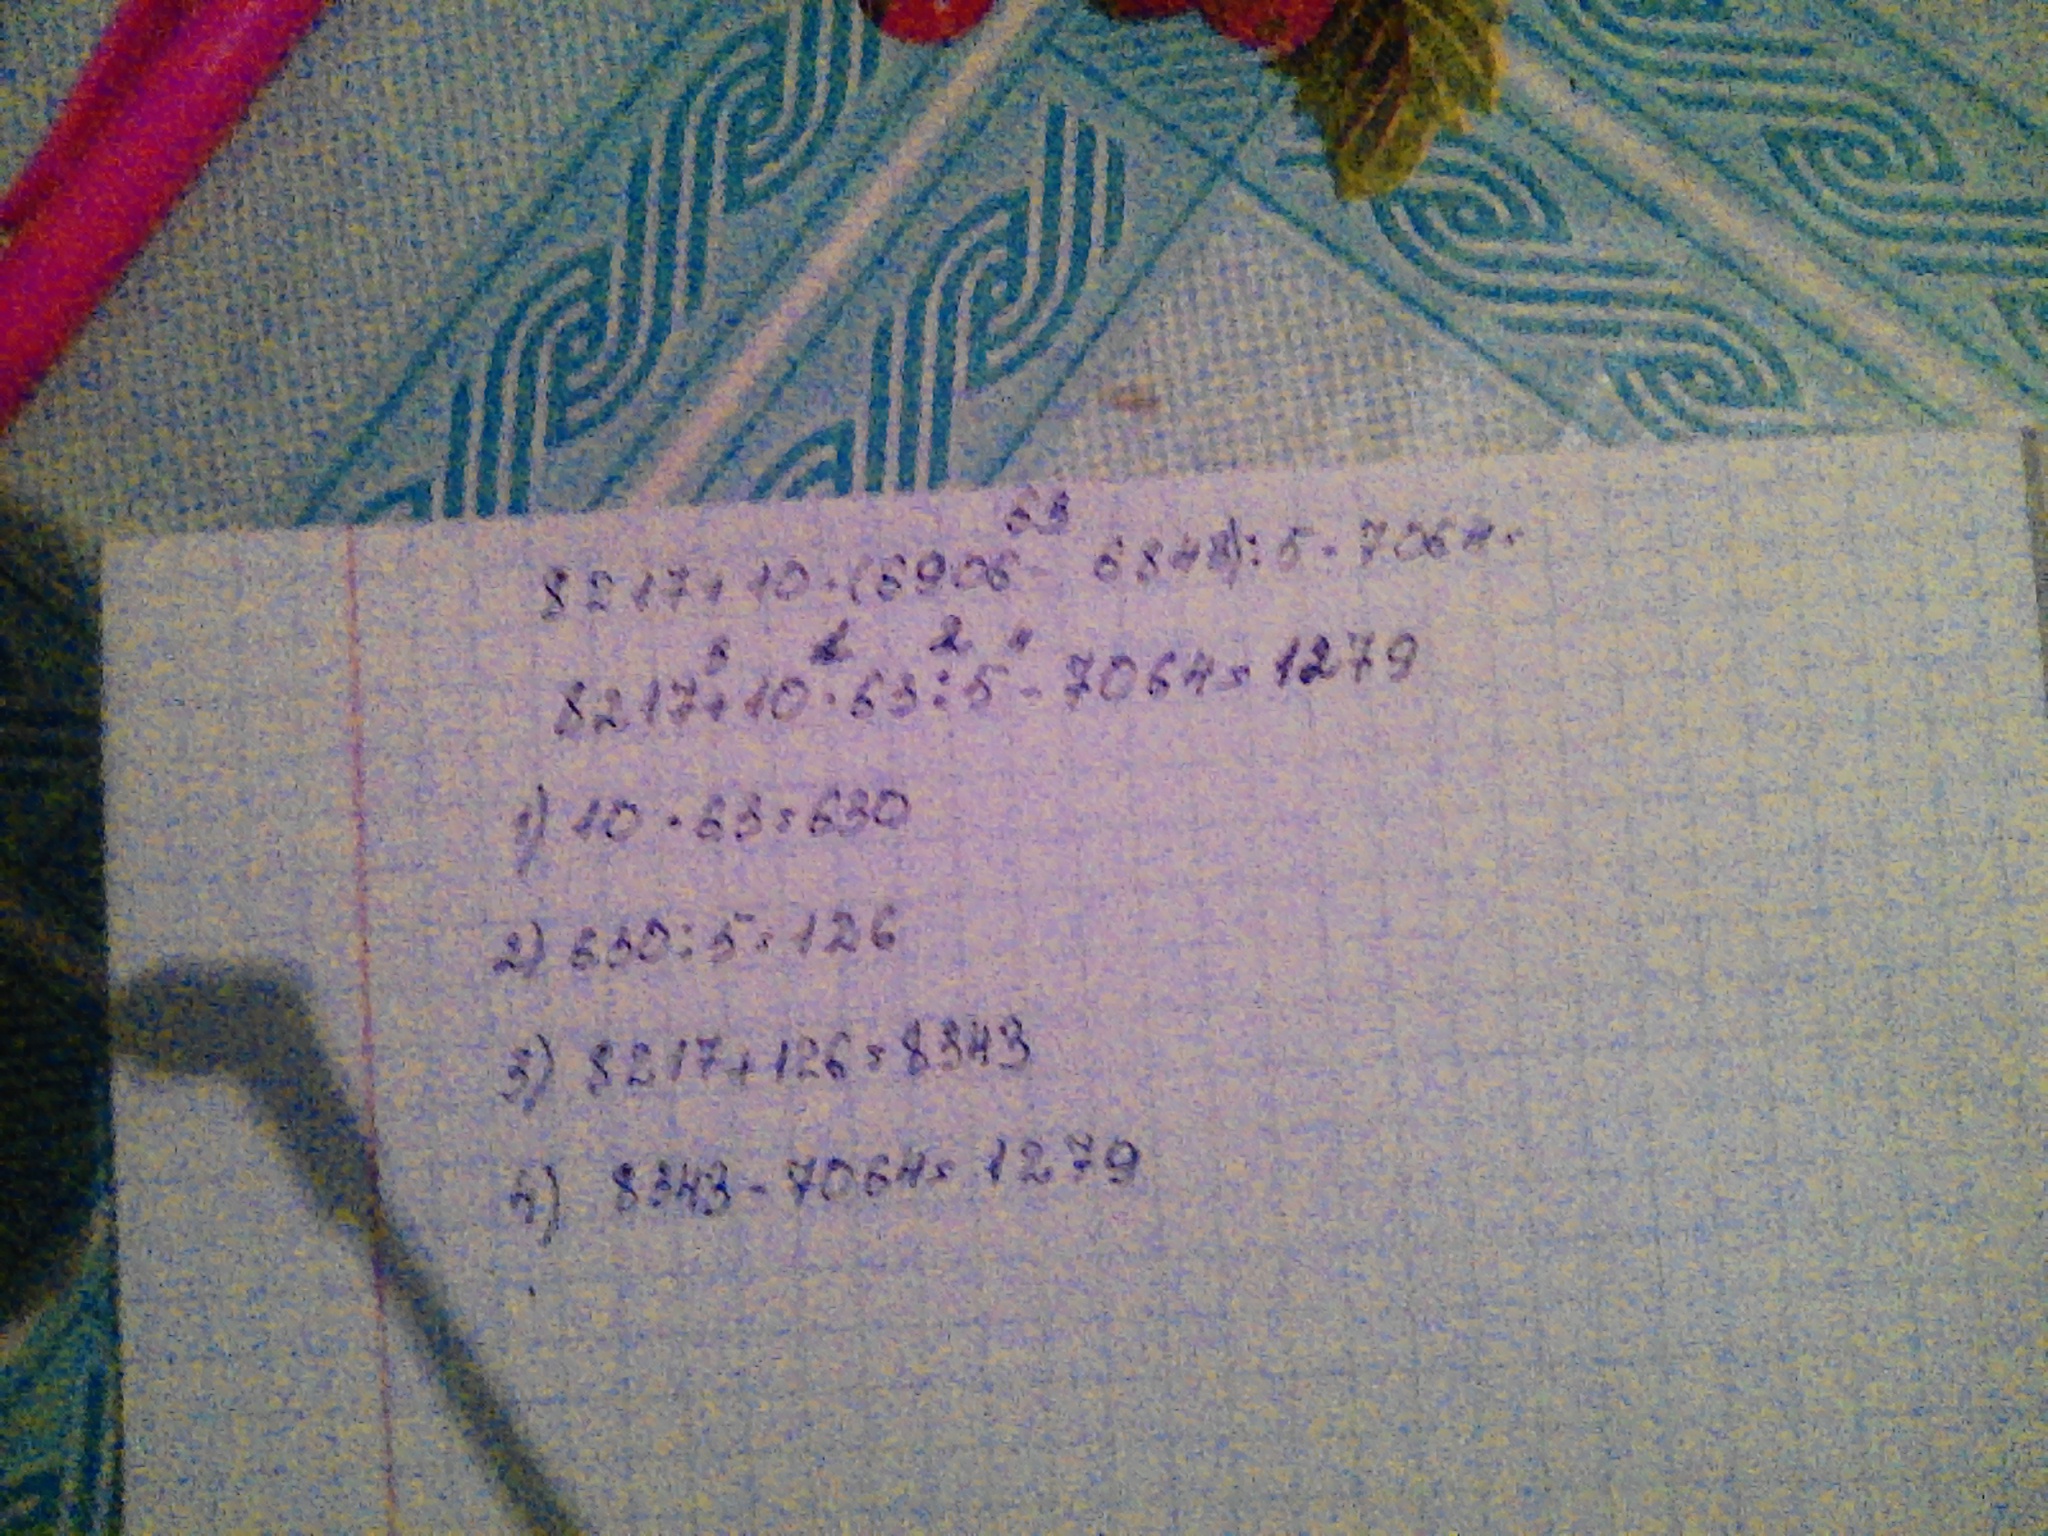 63
8217+10·(6906- 6843):5-7064=
3 1 2 4
8217+10·63:5-7064=1279
1) 10·63=630
2) 630:5=126
3) 8217+126=8343
4) 8343-7064=1279